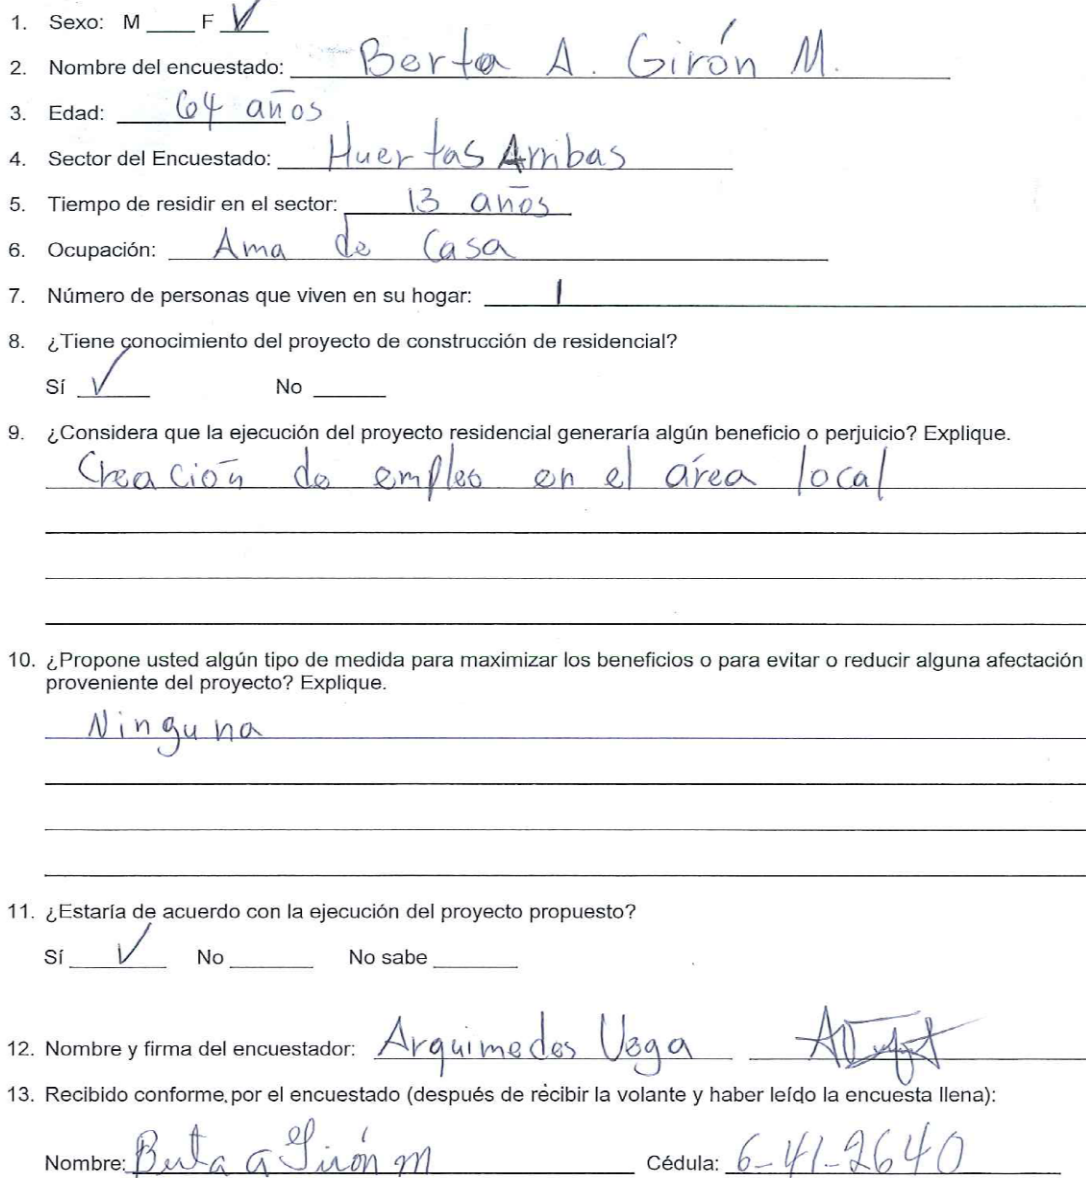 1. Sexo: M ____ F _√_
2. Nombre del encuestado: Berta A. Girón M.
3. Edad: 64 años
4. Sector del Encuestado: Huertas Arribas
5. Tiempo de residir en el sector: 13 años
6. Ocupación: Ama de Casa
7. Número de personas que viven en su hogar: 1
8. ¿Tiene conocimiento del proyecto de construcción de residencial?
Sí _√_ No ____
9. ¿Considera que la ejecución del proyecto residencial generaría algún beneficio o perjuicio? Explique.
Creación de empleo en el área local
10. ¿Propone usted algún tipo de medida para maximizar los beneficios o para evitar o reducir alguna afectación
proveniente del proyecto? Explique.
Ninguna
11. ¿Estaría de acuerdo con la ejecución del proyecto propuesto?
Sí _√_ No ____ No sabe ____
12. Nombre y firma del encuestador: Arquimedes Vega
13. Recibido conforme por el encuestado (después de recibir la volante y haber leído la encuesta llena):
Nombre: Berta A Girón M Cédula: 6-41-2640